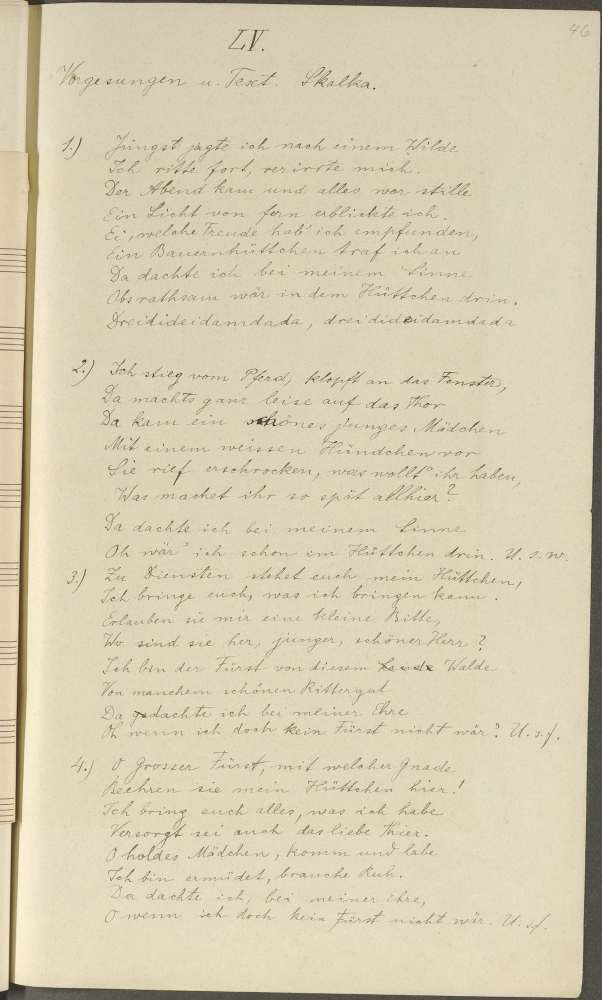 46
LV.
Vorgesungen u. Text. Skalka.
1.) Jüngst jagte ich nach einem Wilde
Ich ritte fort, verirrte mich.
Der Abend kam und alles war stille
Ein Licht von fern erblickte ich.
Ei, welche Freude hab' ich empfunden,
Ein Bauernhüttchen traf ich an
Da dachte ich bei meinem Sinne
Obs rathsam wär in dem Hüttchen drin.
Dreidideidamdada, dreidideidamdada
2.) Ich stieg vom Pferd, klopft an das Fenster,
Da machts ganz leise auf das Thor
Da kam ein schönes junges Mädchen
Mit einem weissen Hündchen vor
Sie rief erschrocken, was wollt' ihr haben,
Was machet ihr so spät allhier?
Da dachte ich bei meinem Sinne
Oh wär' ich schon im Hüttchen drin. U. s. w.
3.) Zu Diensten stehet euch mein Hüttchen,
Ich bringe euch, was ich bringen kann.
Erlauben sie mir eine kleine Bitte,
Wo sind sie her, junger, schöner Herr?
Ich bin der Fürst von diesem Lande Walde
Von manchem schönen Rittergut
Da gedachte ich bei meiner Ehre
Oh' wenn ich doch kein Fürst nicht wär? U. s. f.
4.) O grosser Fürst, mit welcher Gnade
Beehren sie mein Hüttchen hier!
Ich bring euch alles, was ich habe
Versorgt sei auch das liebe Thier.
O holdes Mädchen, komm und labe
Ich bin ermüdet, brauche Ruh.
Da dachte ich, bei meiner ihre,
O wenn ich doch kein Fürst nicht wär. U. s. f.